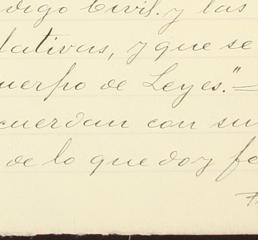 digo Civil. y las
lativas, y que se
uerpo de Leyes."—
cuerdan con su
de lo que doy fe